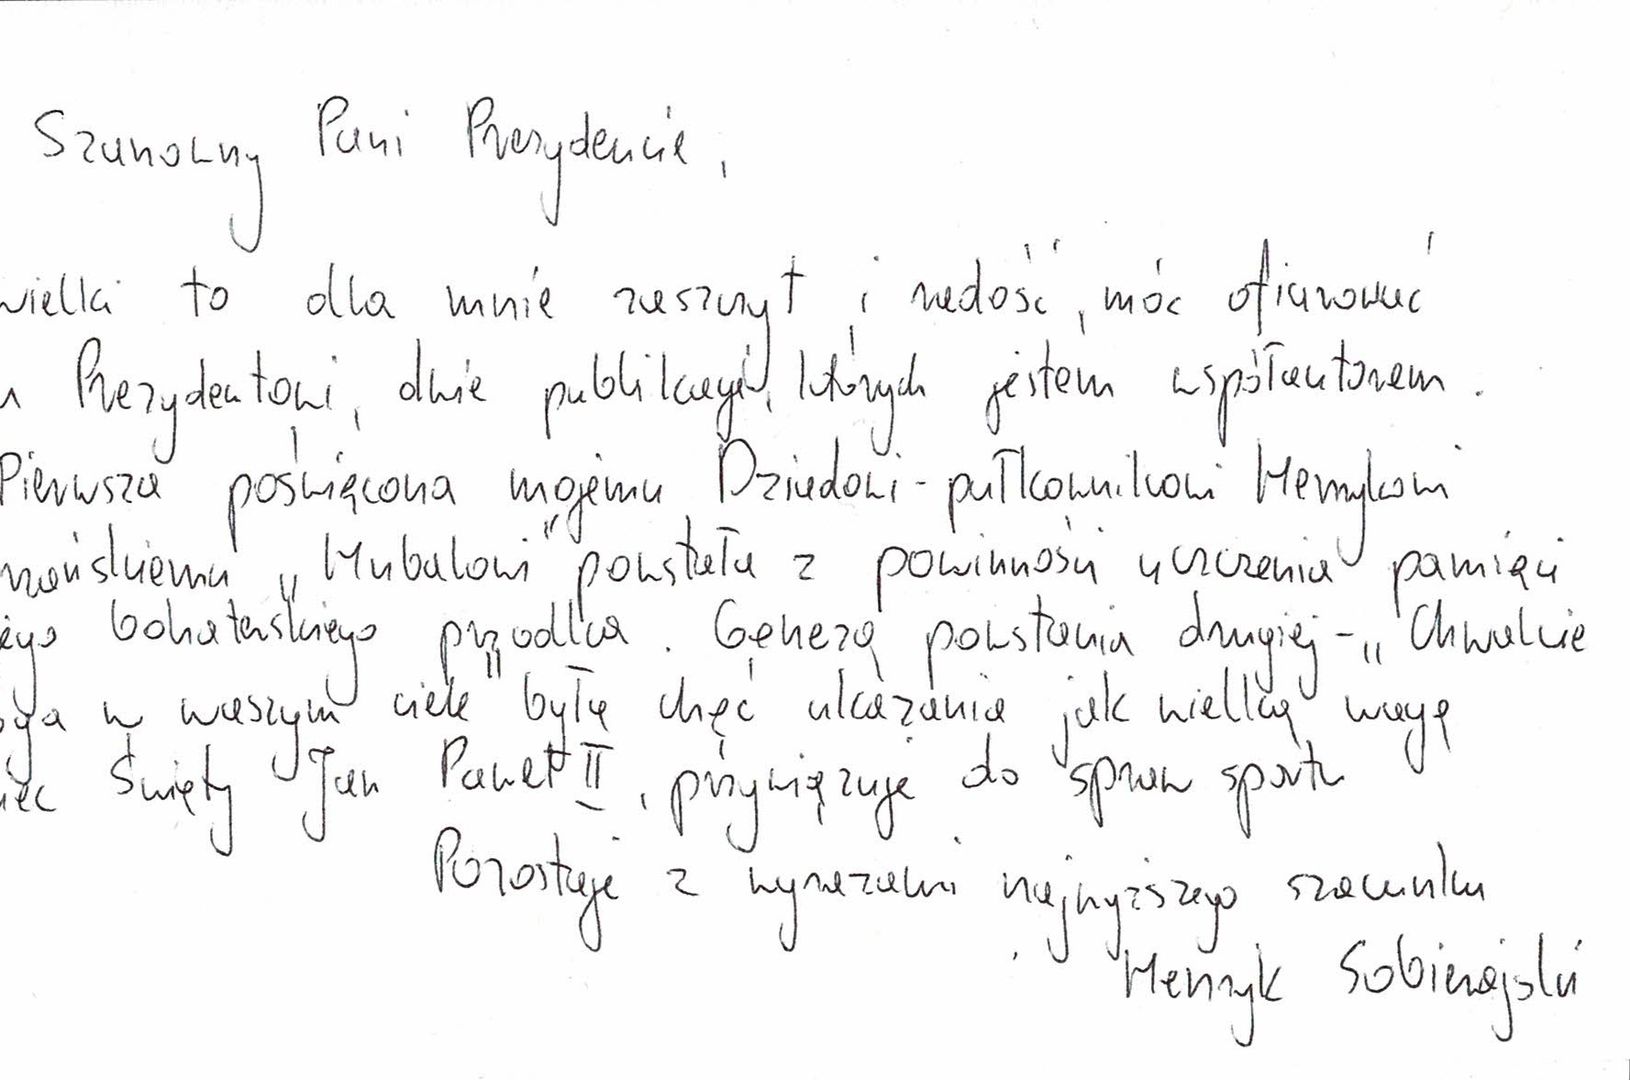 Szanowny Pani Prezydencie,
wielki to dla mnie zaszczyt i radość, móc ofiarować
Prezydentowi, dwie publikacje, których jestem współautorem.
Pierwsza poświęcona mojemu Dziadowi - pułkownikowi Henrykowi
rzańskiemu „Hubalowi" powstała z powinności uczczenia pamięci
ego bohaterskiego przodka. Genezą powstania drugiej - „Chwalcie
oga w waszym ciele" była chęć ukazania jak wielką wagę
iec Święty Jan Paweł II, przywiązuje do spraw sportu
Pozostaję z wyrazami najwyższego szacunku
Henryk Sobierajski